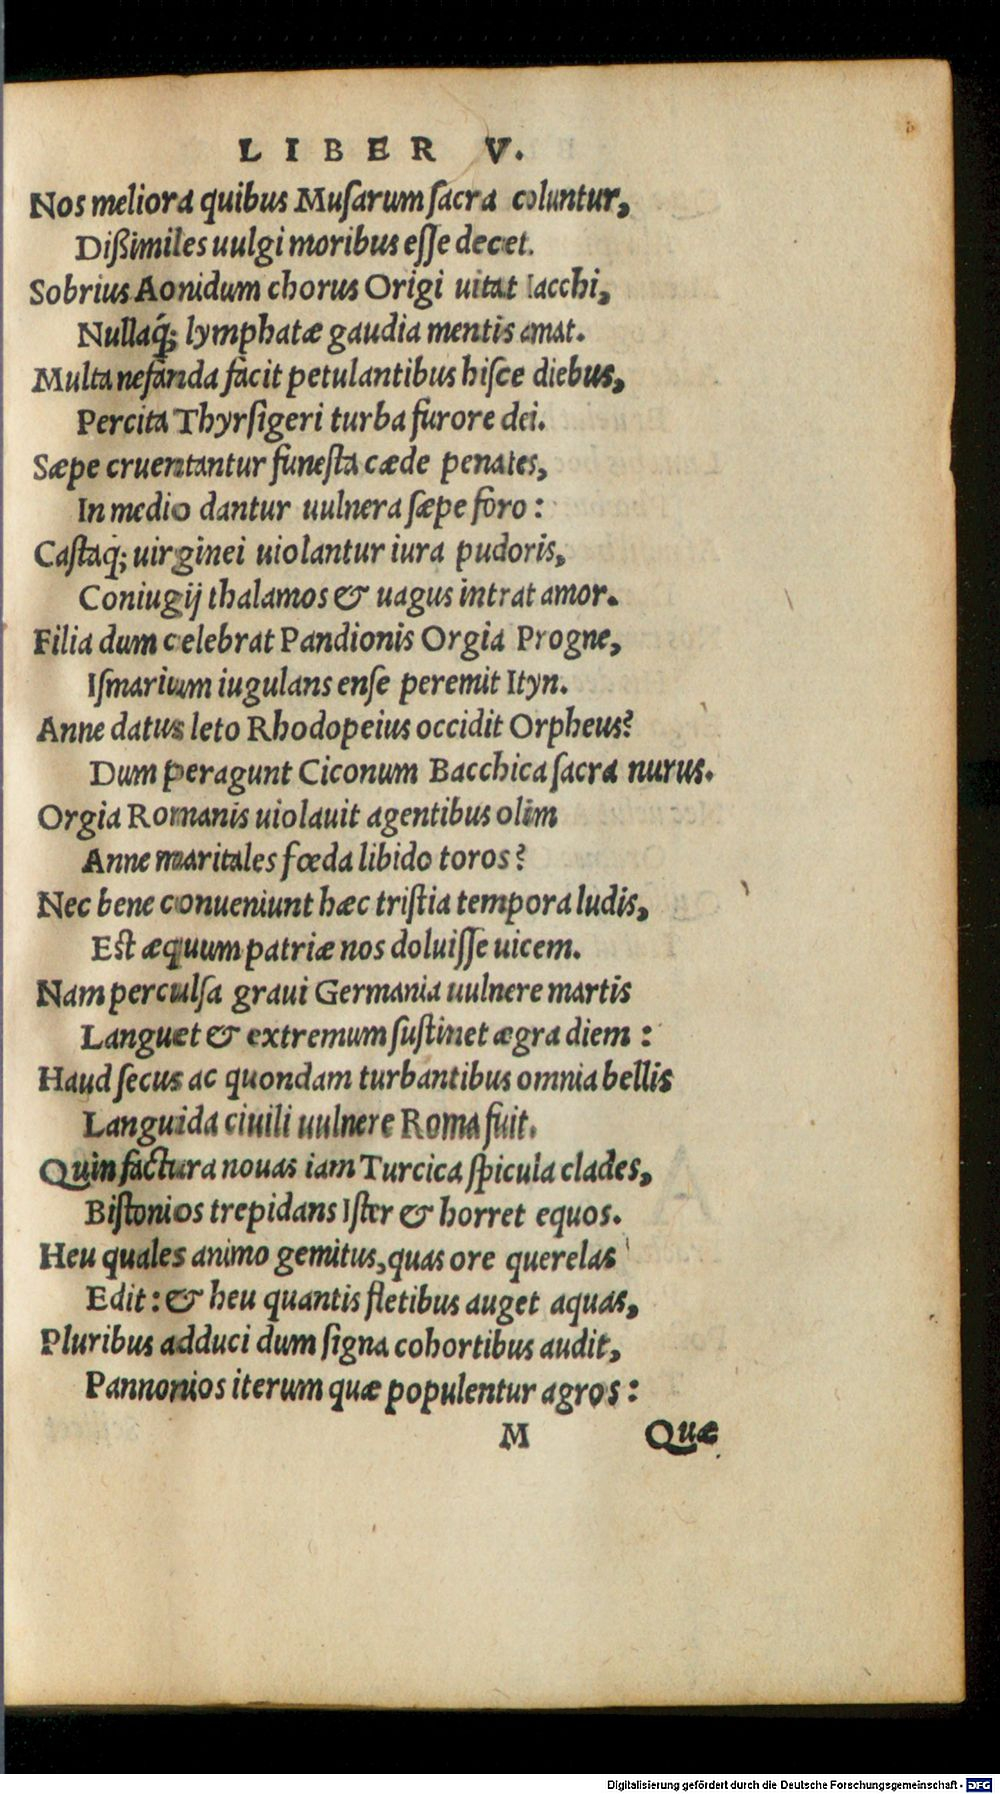 LIBER V.
Nos meliora quibus Muſarum ſacra coluntur,
Dißimiles uulgi moribus eſſe decet.
Sobrius Aonidum chorus Origi uitat Iacchi,
Nullaq́; lymphatæ gaudia mentis amat.
Multa nefanda facit petulantibus hiſce diebus,
Percita Thyrſigeri turba furore dei.
Sæpe cruentantur funeſta cæde penates,
In medio dantur uulnera ſæpe foro:
Caſtaq́; uirginei uiolantur iura pudoris,
Coniugij thalamos & uagus intrat amor.
Filia dum celebrat Pandionis Orgia Progne,
Iſmarium iugulans enſe peremit Ityn.
Anne datus leto Rhodopeius occidit Orpheus?
Dum peragunt Ciconum Bacchica ſacra nurus.
Orgia Romanis uiolauit agentibus olim
Anne maritales fœda libido toros?
Nec bene conueniunt hæc triſtia tempora ludis,
Est æquum patriæ nos doluiſſe uicem.
Nam perculſa graui Germania uulnere martis
Languet & extremum ſuſtinet ægra diem:
Haud ſecus ac quondam turbantibus omnia bellis
Languida ciuili uulnere Roma fuit.
Quin factura nouas iam Turcica ſpicula clades,
Biſtonios trepidans Iſter & horret equos.
Heu quales animo gemitus, quas ore querelas
Edit: & heu quantis fletibus auget aquas,
Pluribus adduci dum ſigna cohortibus audit,
Pannonios iterum quæ populentur agros:
M Quæ
Digitalisierung gefördert durch die Deutsche Forschungsgemeinschaft - DFG